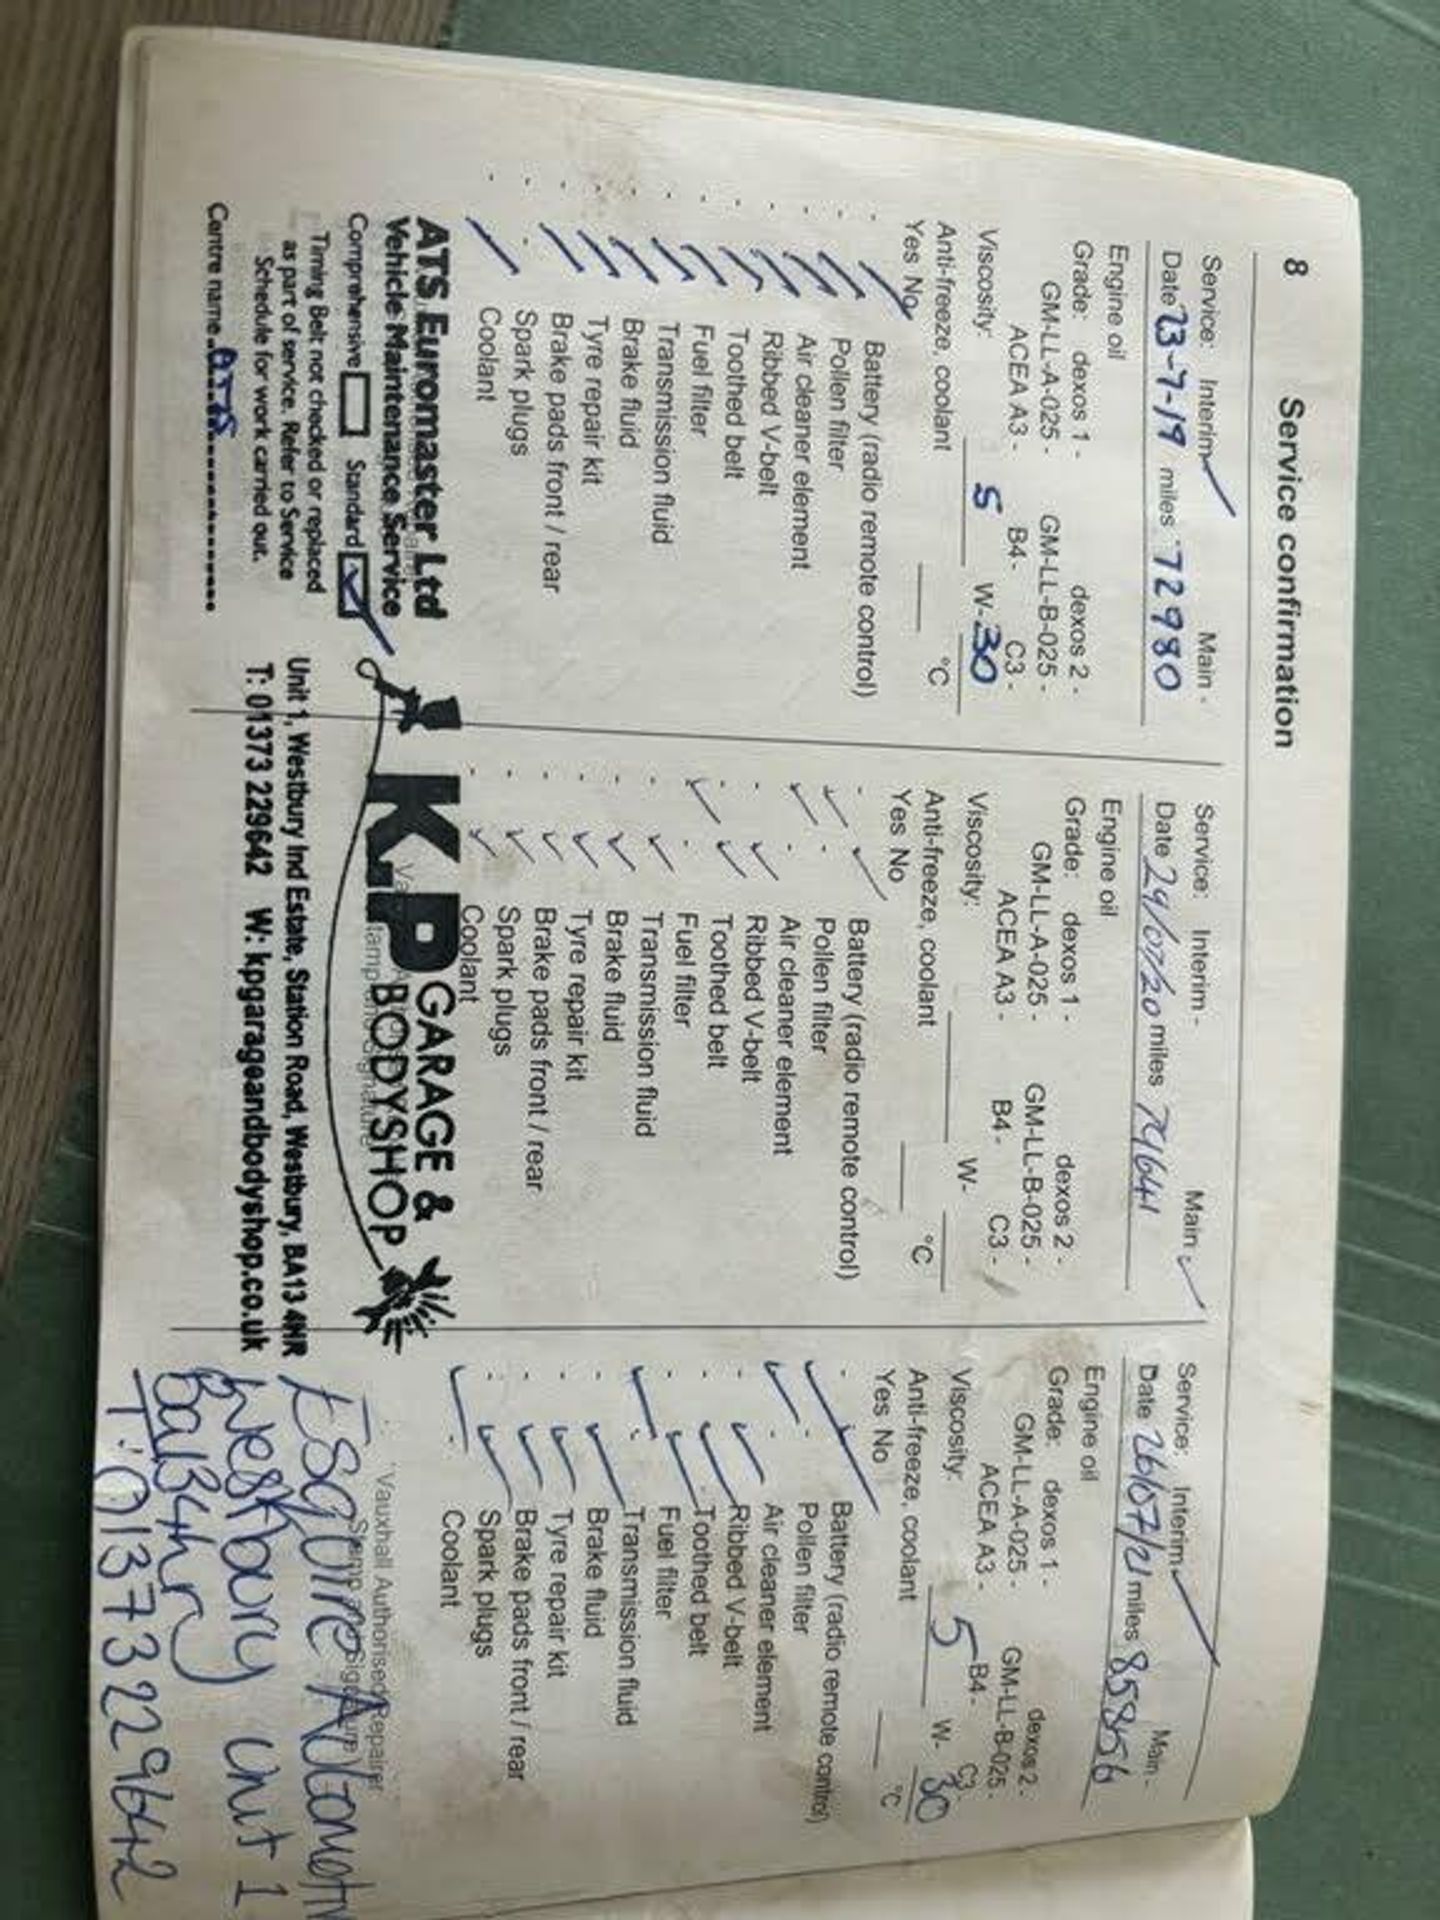 8 Service confirmation
Service: Interim Main -
Date 23-7-19 miles 72980
Engine oil
Grade: dexos 1 - dexos 2 -
GM-LL-A-025 - GM-LL-B-025 -
ACEA A3 - B4 - C3 -
Viscosity: 5 W-30
Anti-freeze, coolant °C
Yes No
Battery (radio remote control)
Pollen filter
Air cleaner element
Ribbed V-belt
Toothed belt
Fuel filter
Transmission fluid
Brake fluid
Tyre repair kit
Brake pads front / rear
Spark plugs
Coolant
ATS Euromaster Ltd
Vehicle Maintenance Service
Comprehensive Standard
Timing Belt not checked or replaced
as part of service. Refer to Service
Schedule for work carried out.
Centre name ATS
Service: Interim - Main
Date 29/07/20 miles 79641
Engine oil
Grade: dexos 1 - dexos 2 -
GM-LL-A-025 - GM-LL-B-025 -
ACEA A3 - B4 - C3 -
Viscosity: W-
Anti-freeze, coolant °C
Yes No
Battery (radio remote control)
Pollen filter
Air cleaner element
Ribbed V-belt
Toothed belt
Fuel filter
Transmission fluid
Brake fluid
Tyre repair kit
Brake pads front / rear
Spark plugs
Coolant
K.P GARAGE &
BODYSHOP
Unit 1, Westbury Ind Estate, Station Road, Westbury, BA13 4HR
T: 01373 229642 W: kpgarageandbodyshop.co.uk
Service: Interim Main -
Date 26/07/21 miles
Engine oil
Grade: dexos 1 - dexos 2 -
GM-LL-A-025 - GM-LL-B-025 -
ACEA A3 - B4 - C3
Viscosity: 5 W- 30
Anti-freeze, coolant °C
Yes No
Battery (radio remote control)
Pollen filter
Air cleaner element
Ribbed V-belt
Toothed belt
Fuel filter
Transmission fluid
Brake fluid
Tyre repair kit
Brake pads front / rear
Spark plugs
Coolant
Vauxhall Authorised Repairer
Stamp and Signature
Esquire Automotiv
Westbury Unit 1
Ba134hr
T:01373229642